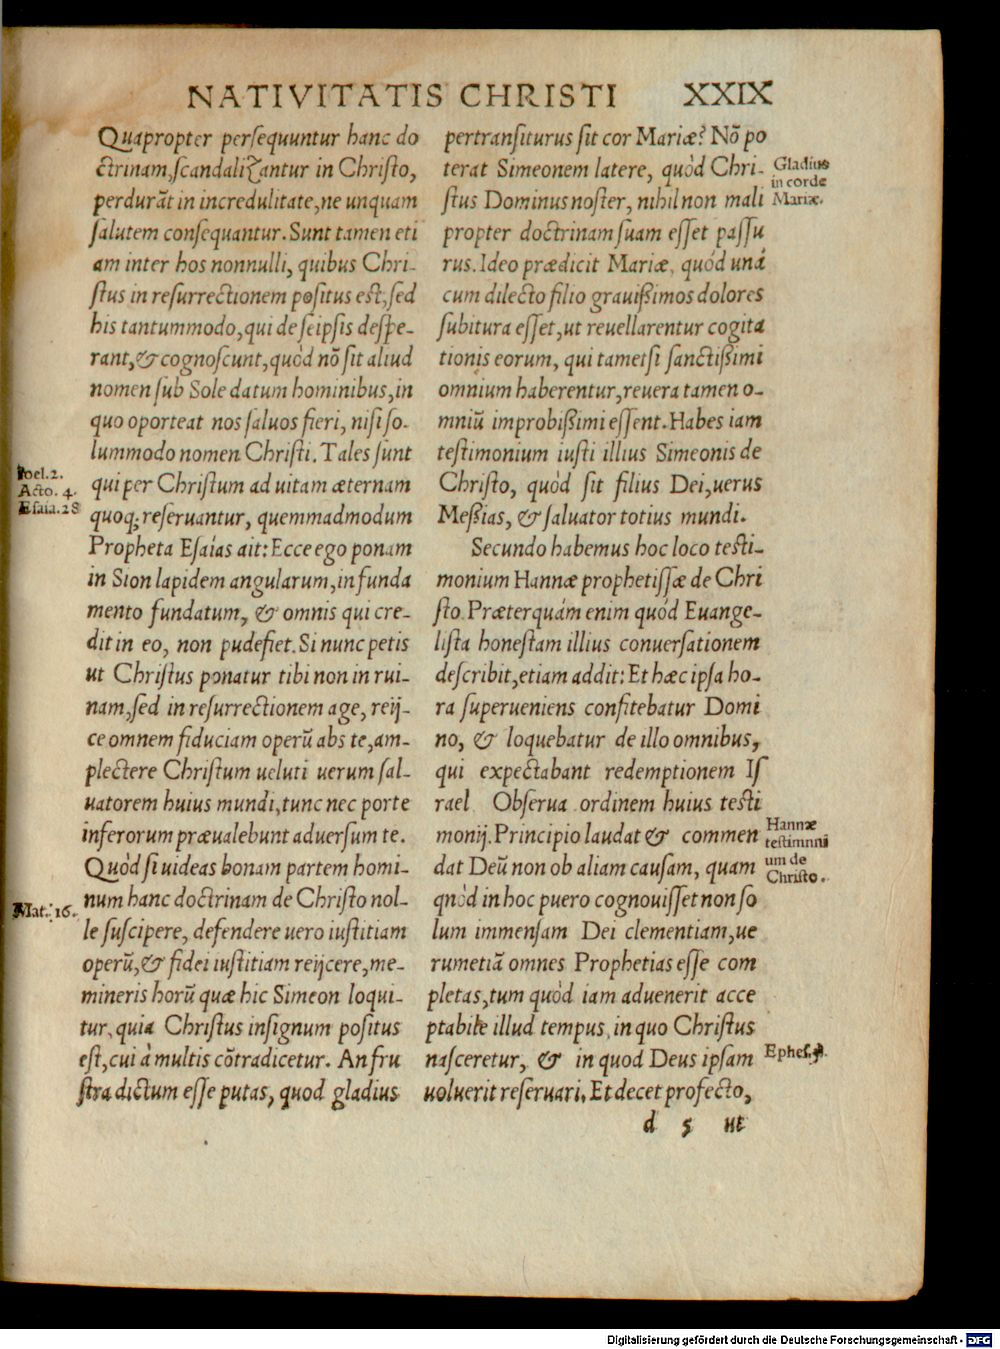 NATIVITATIS CHRISTI XXIX
Quapropter persequuntur hanc do
ctrinam, scandalizantur in Christo,
perdurāt in incredulitate, ne unquam
salutem consequantur. Sunt tamen eti
am inter hos nonnulli, quibus Chri-
stus in resurrectionem positus est, sed
his tantummodo, qui de seipsis despe-
rant, & cognoscunt, quòd nō sit aliud
nomen sub Sole datum hominibus, in
quo oporteat nos saluos fieri, nisi so-
lummodo nomen Christi. Tales sunt
qui per Christum ad uitam æternam
quoq; reseruantur, quemmadmodum
Propheta Esaías ait: Ecce ego ponam
in Sion lapidem angularum, in funda
mento fundatum, & omnis qui cre-
dit in eo, non pudefiet. Si nunc petis
ut Christus ponatur tibi non in rui-
nam, sed in resurrectionem age, reij-
ce omnem fiduciam operū abs te, am-
plectere Christum ueluti uerum sal-
uatorem huius mundi, tunc nec porte
inferorum præualebunt aduersum te.
Quòd si uideas bonam partem homi-
num hanc doctrinam de Christo nol-
le suscipere, defendere uero iustitiam
operū, & fidei iustitiam reijcere, me-
mineris horū quæ hic Simeon loqui-
tur, quia Christus insignum positus
est, cui à multis cōtradicetur. An fru
stra dictum esse putas, quod gladius
Ioel. 2.
Acto. 4.
Esaia. 28
Mat. 16.
pertransiturus sit cor Mariæ? Nō po
terat Simeonem latere, quòd Chri-
stus Dominus noster, nihil non mali
propter doctrinam suam esset passu
rus. Ideo prædicit Mariæ, quòd unà
cum dilecto filio grauißimos dolores
subitura esset, ut reuellarentur cogita
tionis eorum, qui tametsi sanctißimi
omnium haberentur, reuera tamen o-
mniū improbißimi essent. Habes iam
testimonium iusti illius Simeonis de
Christo, quòd sit filius Dei, uerus
Meßias, & saluator totius mundi.
Secundo habemus hoc loco testi-
monium Hannæ prophetissæ de Chri
sto. Præterquám enim quòd Euange-
lista honestam illius conuersationem
describit, etiam addit: Et hæc ipsa ho-
ra superueniens confitebatur Domi
no, & loquebatur de illo omnibus,
qui expectabant redemptionem Is
rael Obserua ordinem huius testi
monij. Principio laudat & commen
dat Deū non ob aliam causam, quam
qnòd in hoc puero cognouisset non so
lum immensam Dei clementiam, ue
rumetiā omnes Prophetias esse com
pletas, tum quòd iam aduenerit acce
ptabile illud tempus, in quo Christus
nasceretur, & in quod Deus ipsam
uoluerit reseruari. Et decet profecto,
Gladius
in corde
Mariæ.
Hannæ
testimnni
um de
Christo.
Ephes.
d 5 ut
Digitalisierung gefördert durch die Deutsche Forschungsgemeinschaft - DFG